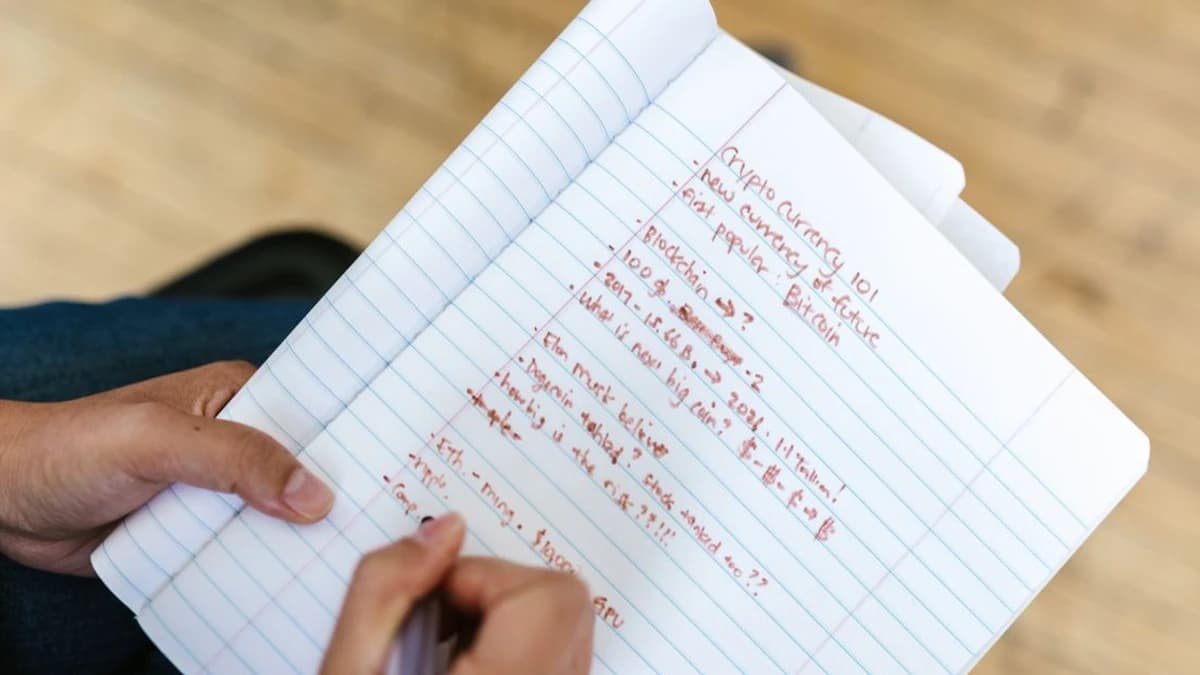 Crypto Currency 101
- new currency of future
- First populer : Bitcoin
- Blockchain → ?
- 100 -2
- 2017 - 15.66 B. → 2021. 1.1 Trillion!
- What is now big coin? $ - $ - $ → $
- Elon musk believer
- Dogecoin tanked? stock tanked too??
- how big is the risk??!!!
- Eth. - ming. $1000 GPU
- ripple.